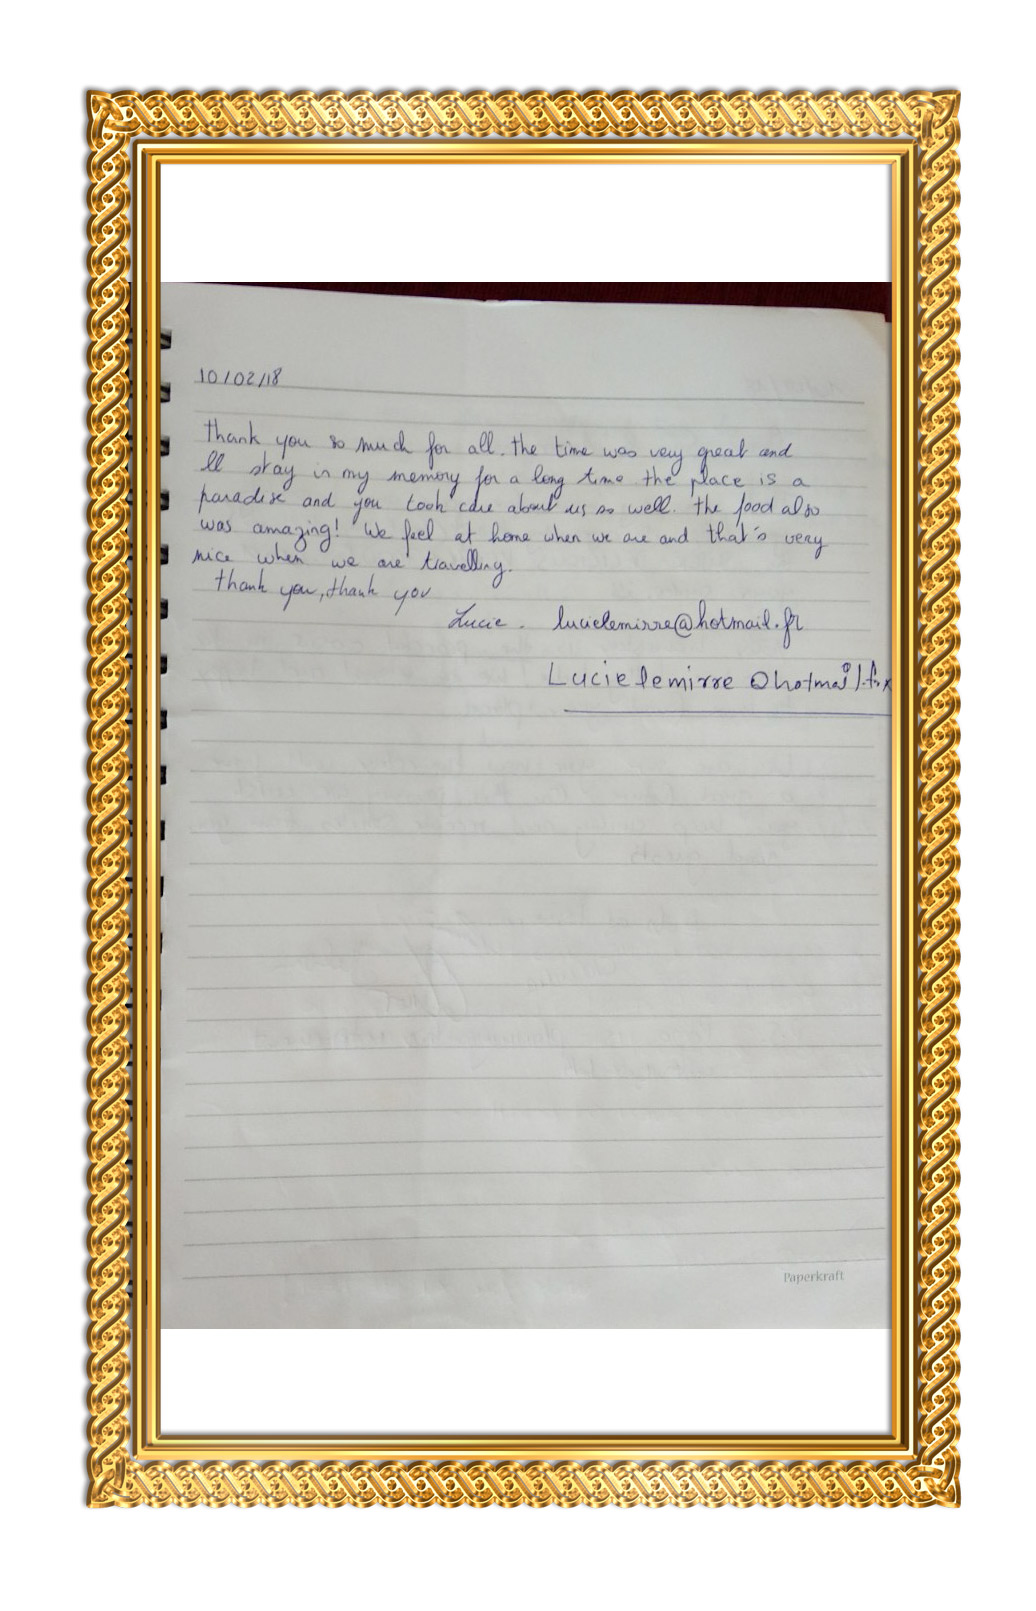 10/02/18
thank you so much for all. the time was very great and
ll stay in my memory for a long time. the place is a
paradise and you took care about us so well. the food also
was amazing! We feel at home when we are and that's very
nice when we are travelling.
thank you, thank you
Lucie. lucielemirre@hotmail.fr
Lucielemirre @hotmail.fr
Paperkraft